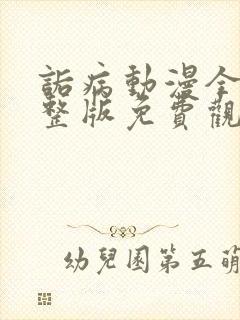 詬病動漫全
整版免費觀
幼兒園第五萌